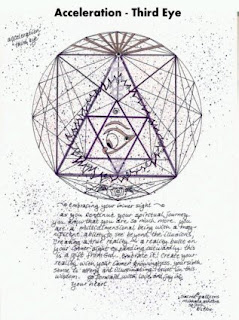 Acceleration - Third Eye
acceleration
third eye
embracing your inner sight
as you continue your spiritual journey
you know that you are so much more. you
are a multidimensional being with a magnificent
ability to see beyond the illusion.
creating a true reality is a reality built on
your inner sight by
this is a gift from God. embrace it! create your
reality with your inner knowingness. your sixth
sense is strong and illuminating. trust in this
wisdom. go forward with love and joy in
your heart.